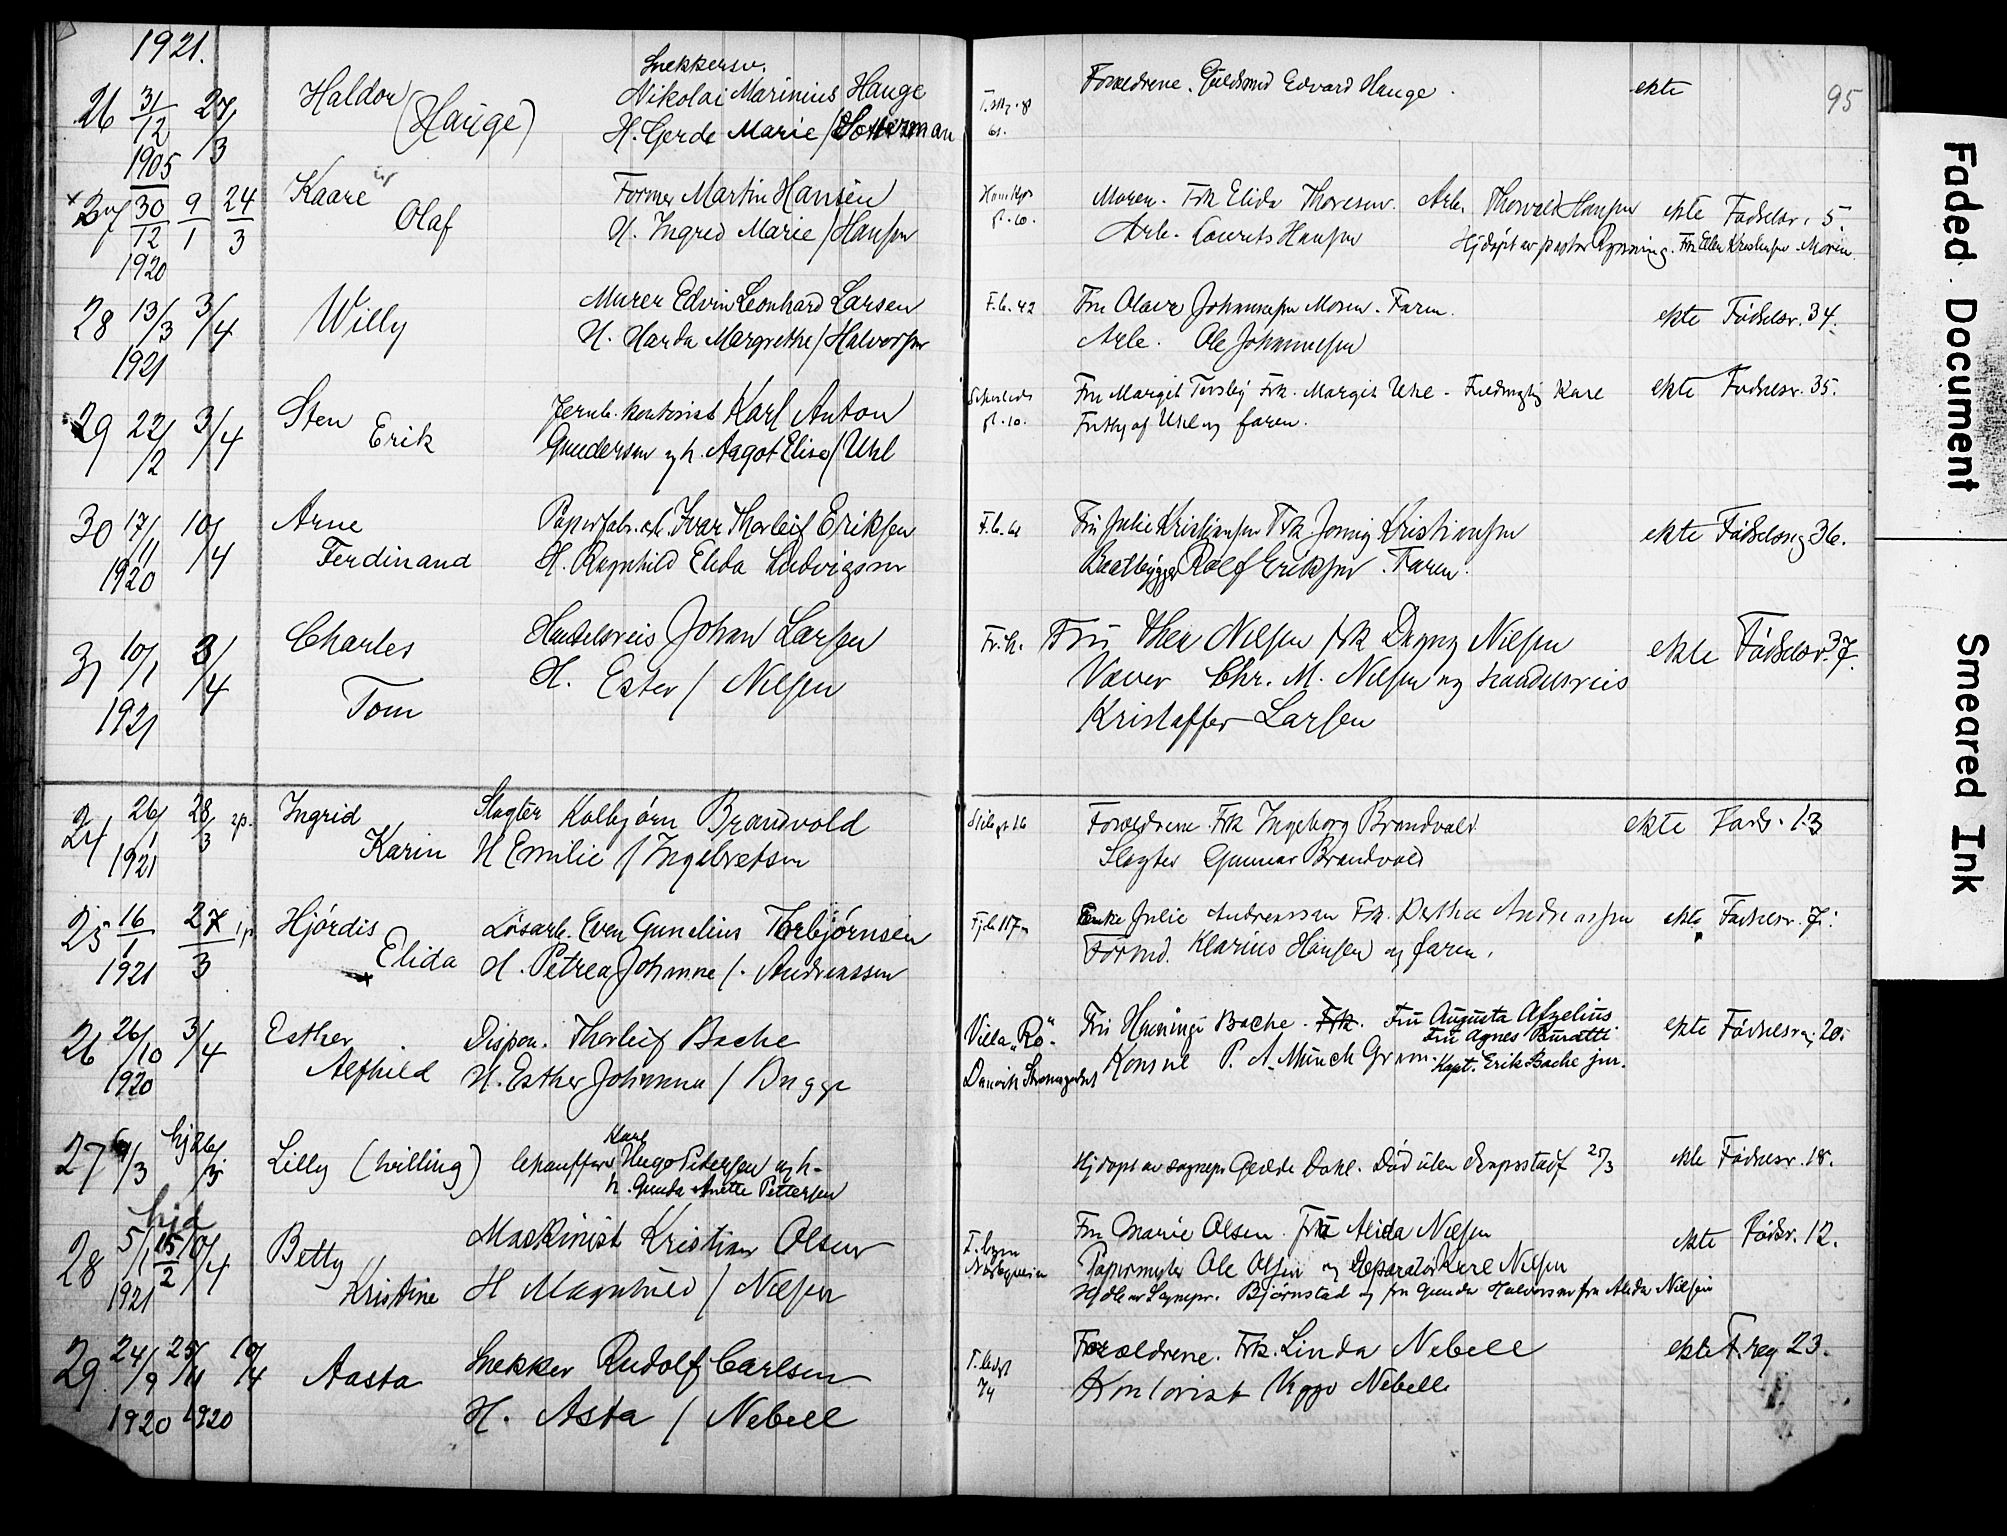 1921.
95
26 31/12 1905 27/3 Haldor (Hauge) Snekkersv.
Nikolai Marinius Hauge
H. Gerda Marie /
61.
Forældrene. Guldsmed Edvard Hauge. ekte
27 30/12 1920 9/1 24/3 Kaare Olaf
Former Martin Hansen
H. Ingred Marie / Hansen
Moren. Frk Elida Thoresen. Arb. Thorvald Hansen ekte Fødselsr. 5.
Arb. Laurits Hansen Hjdøpt av pastor Rynning. Fru Ellen Kristensen. Moren.
28 13/3 1921 3/4 Willy
Murer Edvin Leonhard Larsen
H. Harda Margrethe / Halvorsen
F.b. 42
Fru Olava Johannesen Moren. Faren. ekte Fødselsr. 34.
Arb. Ole Johannesen
29 22/2 3/4 Sten Erik
Jernb. kontorist Karl Anton
Gundersen og h. Aagot Elise / Uhl
gt. 10.
Fru Margit Frk. Margit Uhl - Kare ekte Fødselsr. 35.
Uhl og faren.
30 17/11 1920 10/4 Arne Ferdinand
Papirfabr. arb. Ivar Thorleif Eriksen
H. Ragnhild Elida Ludvigsen
F.b. 61
Fru Julie Kristiansen Frk Jenny Kristiansen ekte Fødselsreg 36.
Baatbygger Rolf Eriksen. Faren.
31 10/1 1921 3/4 Charles Tom
Handelsreis Johan Larsen
H. Ester / Nilsen
Fr.h.
Fru Thea Nilsen frk Dagny Nilsen ekte Fødselsr. 37.
Væver Chr. M. Nilsen og handelsreis
Kristoffer Larsen
24 26/1 1921 28/3 2p. Ingrid Karin
Slagter Kolbjørn Brandvold
H Emilie / Ingebretsen
16
Forældrene Frk Ingeborg Brandvold ekte Føds. 13
Slagter Gunnar Brandvold
25 16/1 1921 27/3 Hjørdis Elida
Løsarb. Even Gunelius Thorbjørnsen
H. Petrea Johanne /. Andreassen
117
Enke Julie Andreassen Frk. Bertha Andreassen ekte Fødselsr. 7.
Formd. Klarius Hansen og faren.
26 26/10 1920 3/4 Esther Alfhild
Dispon. Thorleif Bache
H. Esther Johanna / Bugge
Villa "Ro"
Danvik
Fru Henninge Bache. Frk. Fru Augusta Afzelius ekte Fødselsreg 20.
Fru Agnes Buratti
Konsul P. A. Munch Gram. Kapt. Erik Bache jun.
27 /3 hj 26/3 Lilly (tvilling)
Chauffør Karl Hugo Petersen og h.
h. Gunda Anette Pettersen
Hjdøpt av sognepr Gerhde Dahl. Død uten dropsstadf 27/3 ekte Fødselsr. 18.
28 5/1 1921 hjd 15/2 10/4 Betty Kristine
Maskinist Kristian Olsen
H Magnhild / Nilsen
Fru Marie Olsen. Frk Alida Nilsen ekte Fødsr. 12.
Papirmester Ole Olsen og Reparatør Karl Nilsen
Hjdb av Sognepr. Bjørnstad og fru Gunda Halvorsen fru Alida Nilsen
29 24/9 1920 25/11 1920 10/4 Aasta
Snekker Rudolf Carlsen
H. Asta / Nebell
74
Forældrene. Frk. Linda Nebell ekte F. reg 23.
Kontorist Viggo Nebell
Faded Document
Smeared Ink